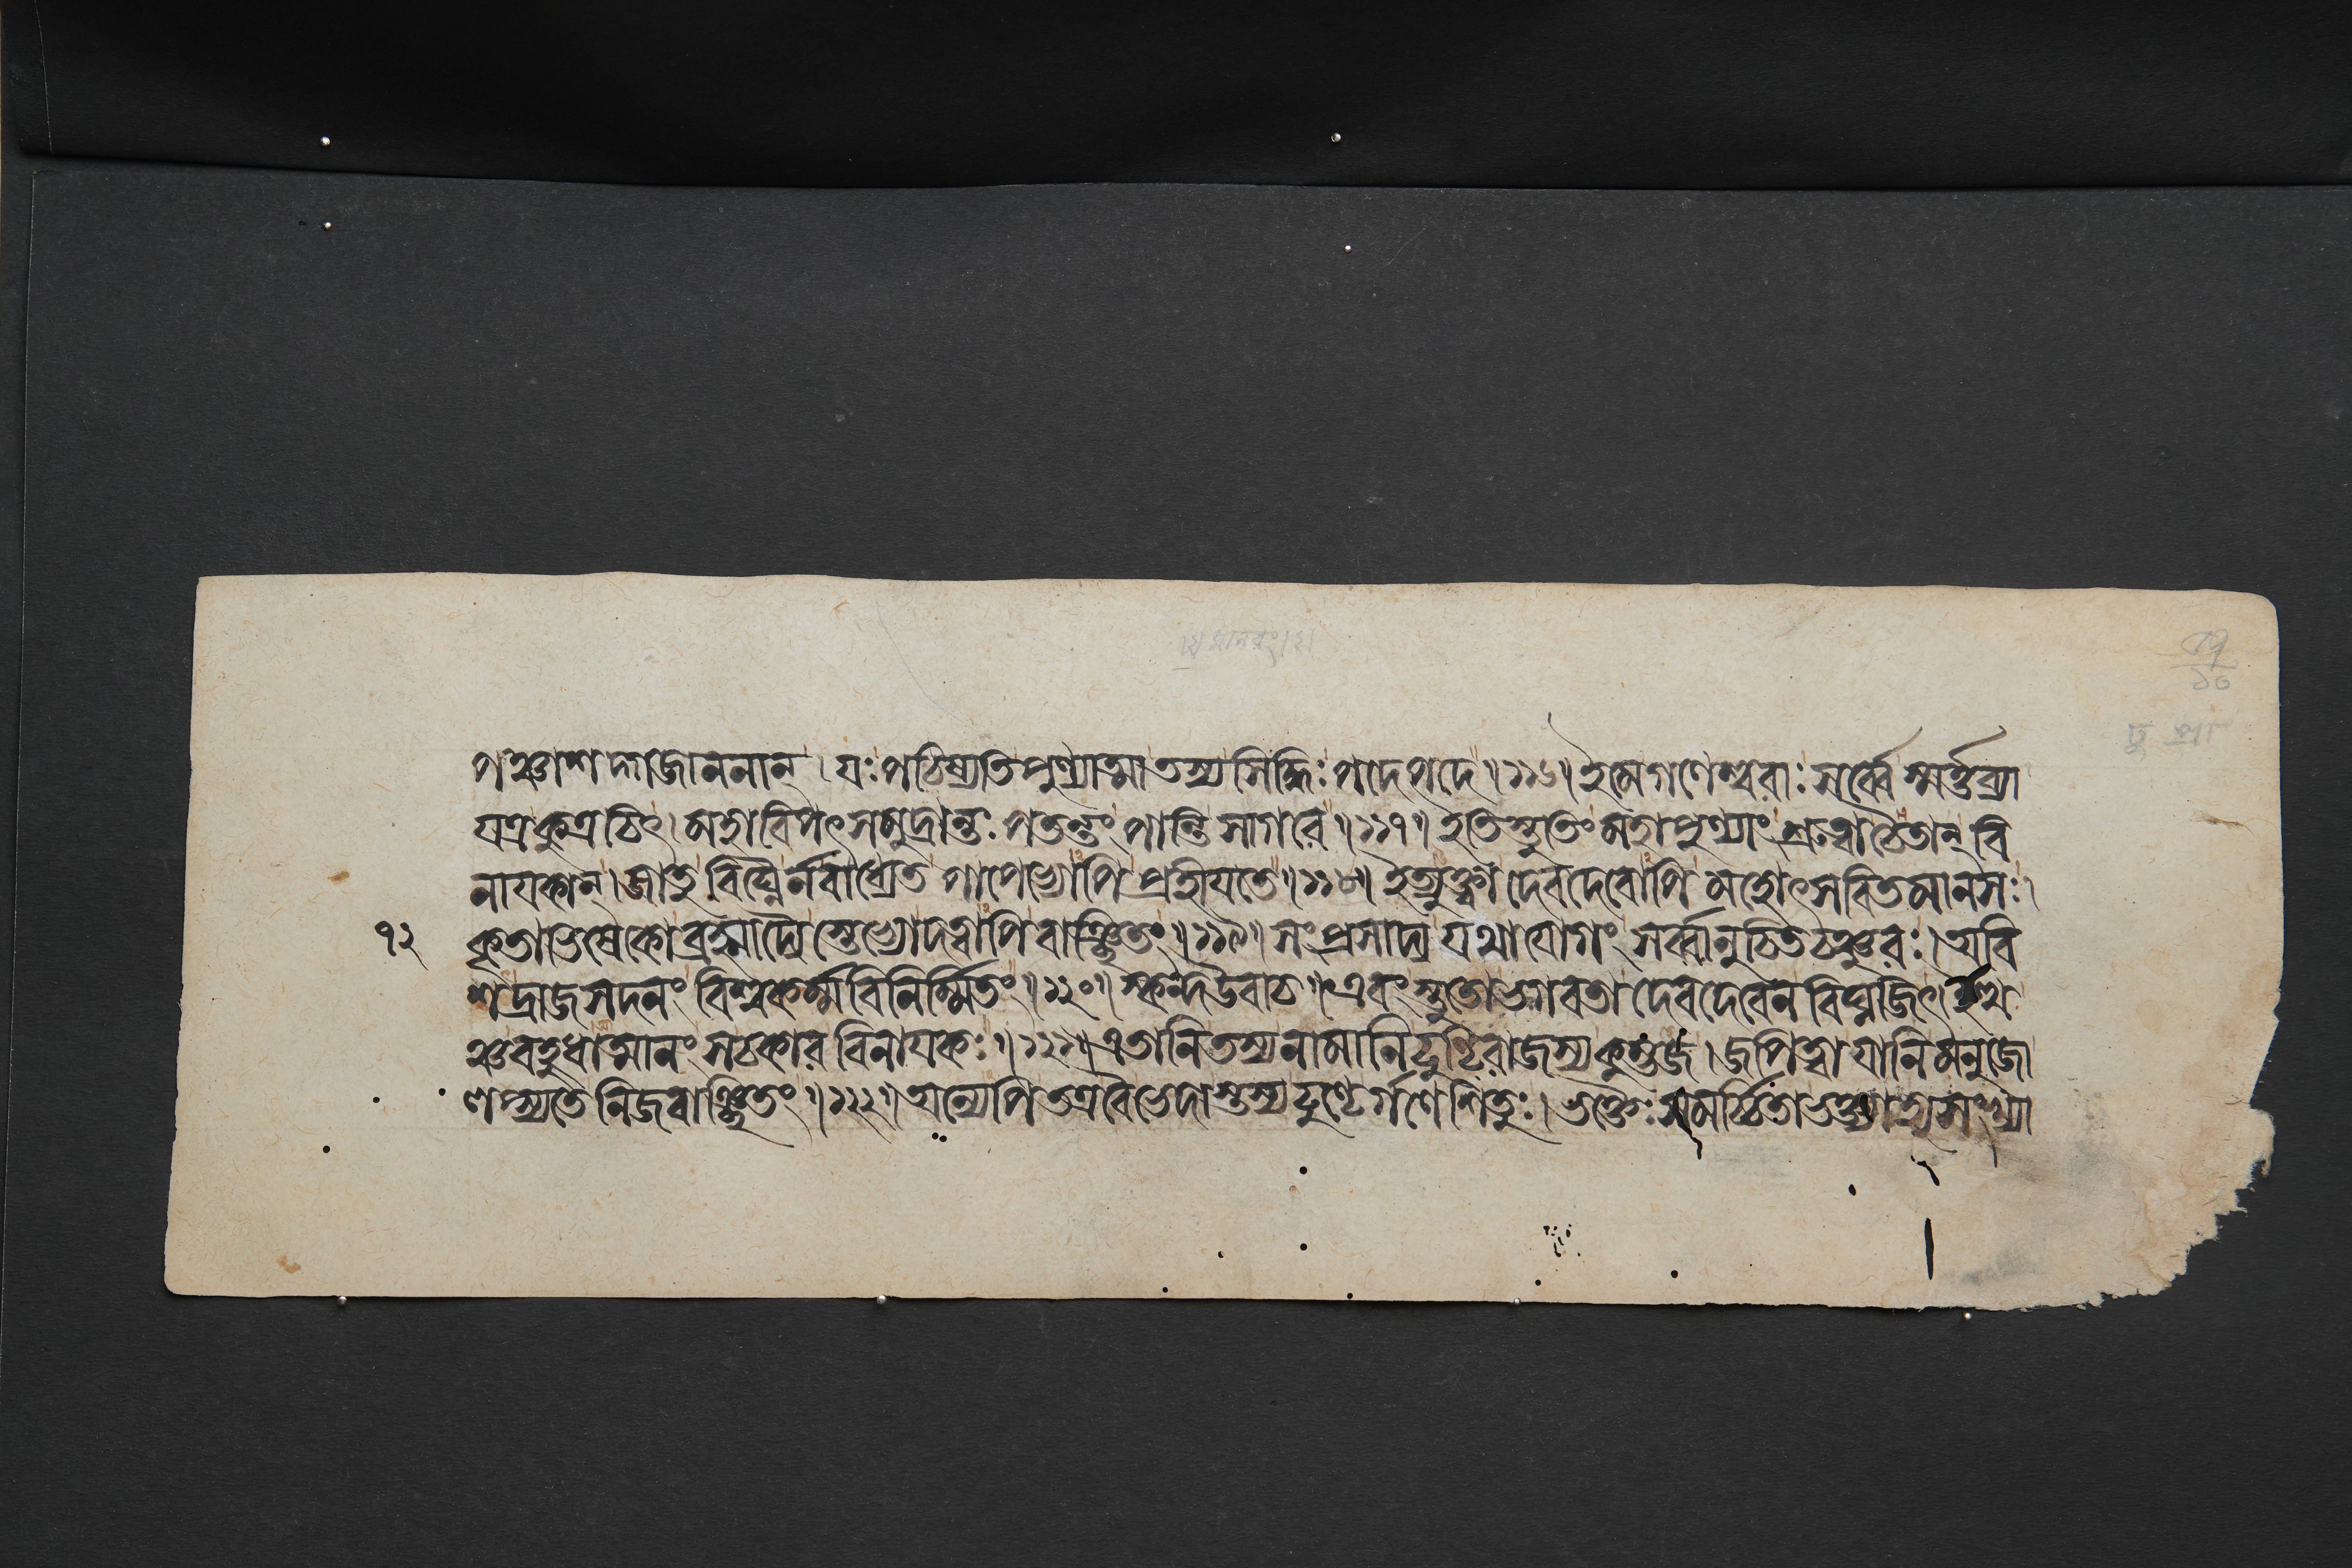 পঞ্চাশদ্গজাননান্ । যঃ পঠিষ্যতি পুণ্যাত্মা তস্য সিদ্ধিঃ পদে পদে ॥ ১১৬ ॥ ইমে গণেশ্বরাঃ সর্ব্বে স্মর্ত্তব্যা
যত্র কুত্রচিৎ । মহাবিপৎসমুদ্রান্তঃ পতন্তং পান্তি সাগরে ॥ ১১৭ ॥ ইতি স্তুতিং মহাপুণ্যাং শ্রুত্বা চৈতান্ বি
নাযকান্ । জাতু বিঘ্নৈর্নবাধ্যেত পাপেভ্যোপি প্রহীযতে ॥ ১১৮ ॥ ইত্যুক্ত্বা দেবদেবোপি মহোৎসবিতমানসঃ ।
৭২ কৃতাভিষেকো ব্রহ্মাদ্যৈস্তেভ্যো দত্বাপি বাঞ্ছিতং ॥ ১১৯ ॥ সংপ্রসাদ্য যথাযোগং সর্ব্বানুচিতচঞ্চুরঃ । অবি
শদ্রাজসদনং বিশ্বকর্ম্মবিনির্ম্মিতং ॥ ১২০ ॥ স্কন্দ উবাচ ॥ এবং স্তুতো ভগবতা দেবদেবেন বিঘ্নজিৎ । ইত্থ
ঞ্চ বহুধাত্মানং স চকার বিনাযকঃ ॥ ১২১ ॥ এতানি তস্য নামানি ঢুণ্ঢিরাজস্য কুম্ভজ । জপিত্বা যানি মনুজো
লপ্স্যতে নিজবাঞ্ছিতং ॥ ১২২ ॥ অন্যেপি তত্র বৈ ভেদাস্তস্য ঢুণ্ঢের্গণেশিতুঃ । ভক্তৈঃ সমর্চ্চিতা ভক্ত্যা ত্বসংখ্যা